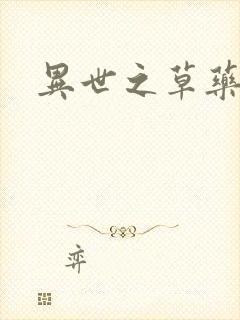 異世之草藥
弈